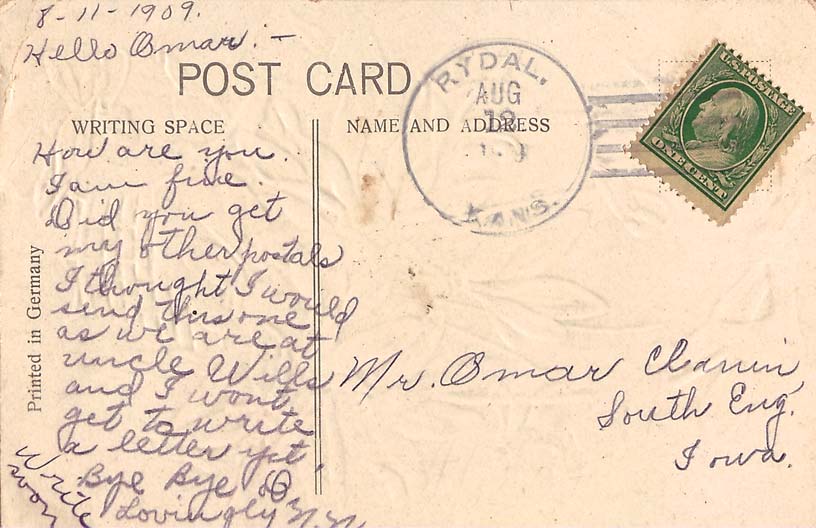 8-11-1909.
Hello Omar. -
POST CARD
WRITING SPACE
NAME AND ADDRESS
How are you.
I am fine.
Did you get
my other postals
I thought I would
send this one
as we are at
uncle Wills
and I wont
get to write
a letter yet,
Bye Bye
Lovingly N. N.
Write
soon
Printed in Germany
RYDAL,
AUG
12
KANS.
U.S. POSTAGE
ONE CENT
Mr. Omar
South Eng.
Iowa.